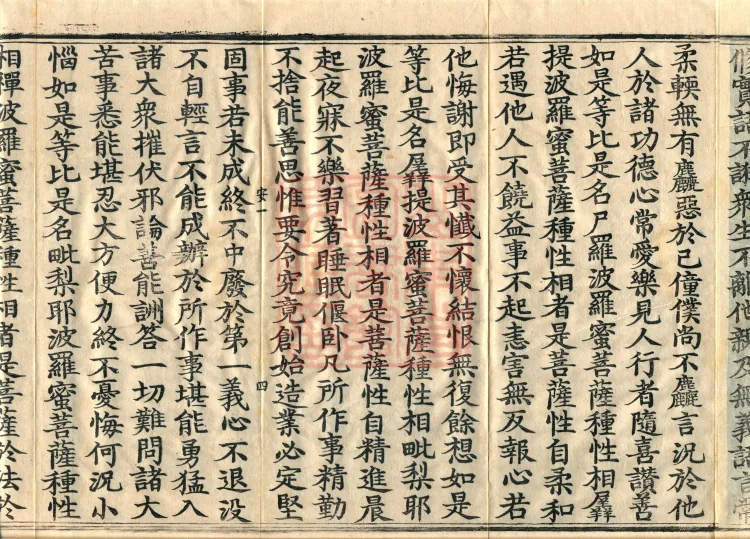 實語不誑衆生不離他親及無義語言常
柔輭無有麤惡於己僮僕尚不麤言況於他
人於諸功德心常愛樂見人行者隨喜讚善
如是等比是名尸羅波羅蜜菩薩種性相羼
提波羅蜜菩薩種性相者是菩薩性自柔和
若遇他人不饒益事不起恚害無反報心若
他悔謝即受其懺不懷結恨無復餘想如是
等比是名羼提波羅蜜菩薩種性相毗梨耶
波羅蜜菩薩種性相者是菩薩性自精進晨
起夜寐不樂習著睡眠偃臥凡所作事精勤
不捨能善思惟要令究竟創始造業必定堅
安一 四
固事若未成終不中廢於第一義心不退没
不自輕言不能成辦於所作事堪能勇猛入
諸大衆摧伏邪論善能詶答一切難問諸大
苦事悉能堪忍大方便力終不憂悔何況小
惱如是等比是名毗梨耶波羅蜜菩薩種性
相禪波羅蜜菩薩種性相者是菩薩於法於